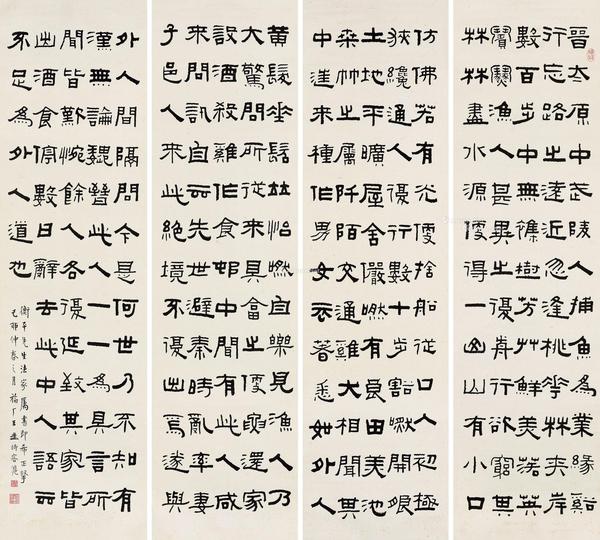 晉太原中武陵人捕魚為業緣谿
行忘路之遠近忽逢桃花林夾岸
數百步中無雜樹芳草鮮美落英
繽紛漁人甚異之復前行欲窮其
林林盡水源便得一山山有小口
仿佛若有光便捨船從口入初極
狹纔通人復行數十步豁然開朗
土地平曠屋舍儼然有良田美池
桑竹之屬阡陌交通雞犬相聞其
中往來種作男女衣著悉如外人
黃髮垂髫並怡然自樂見漁人乃
大驚問所從來具答之便要還家
設酒殺雞作食邨中聞有此人咸
來問訊自云先世避秦時亂率妻
子邑人來此絕境不復出焉遂與
外人間隔問今是何世乃不知有
漢無論魏晉此人一一為具言所
聞皆歎惋餘人各復延致其家皆
出酒食停數日辭去此中人語云
不足為外人道也
先生法家屬書即希正
仲春之月福厂王禔時客滬